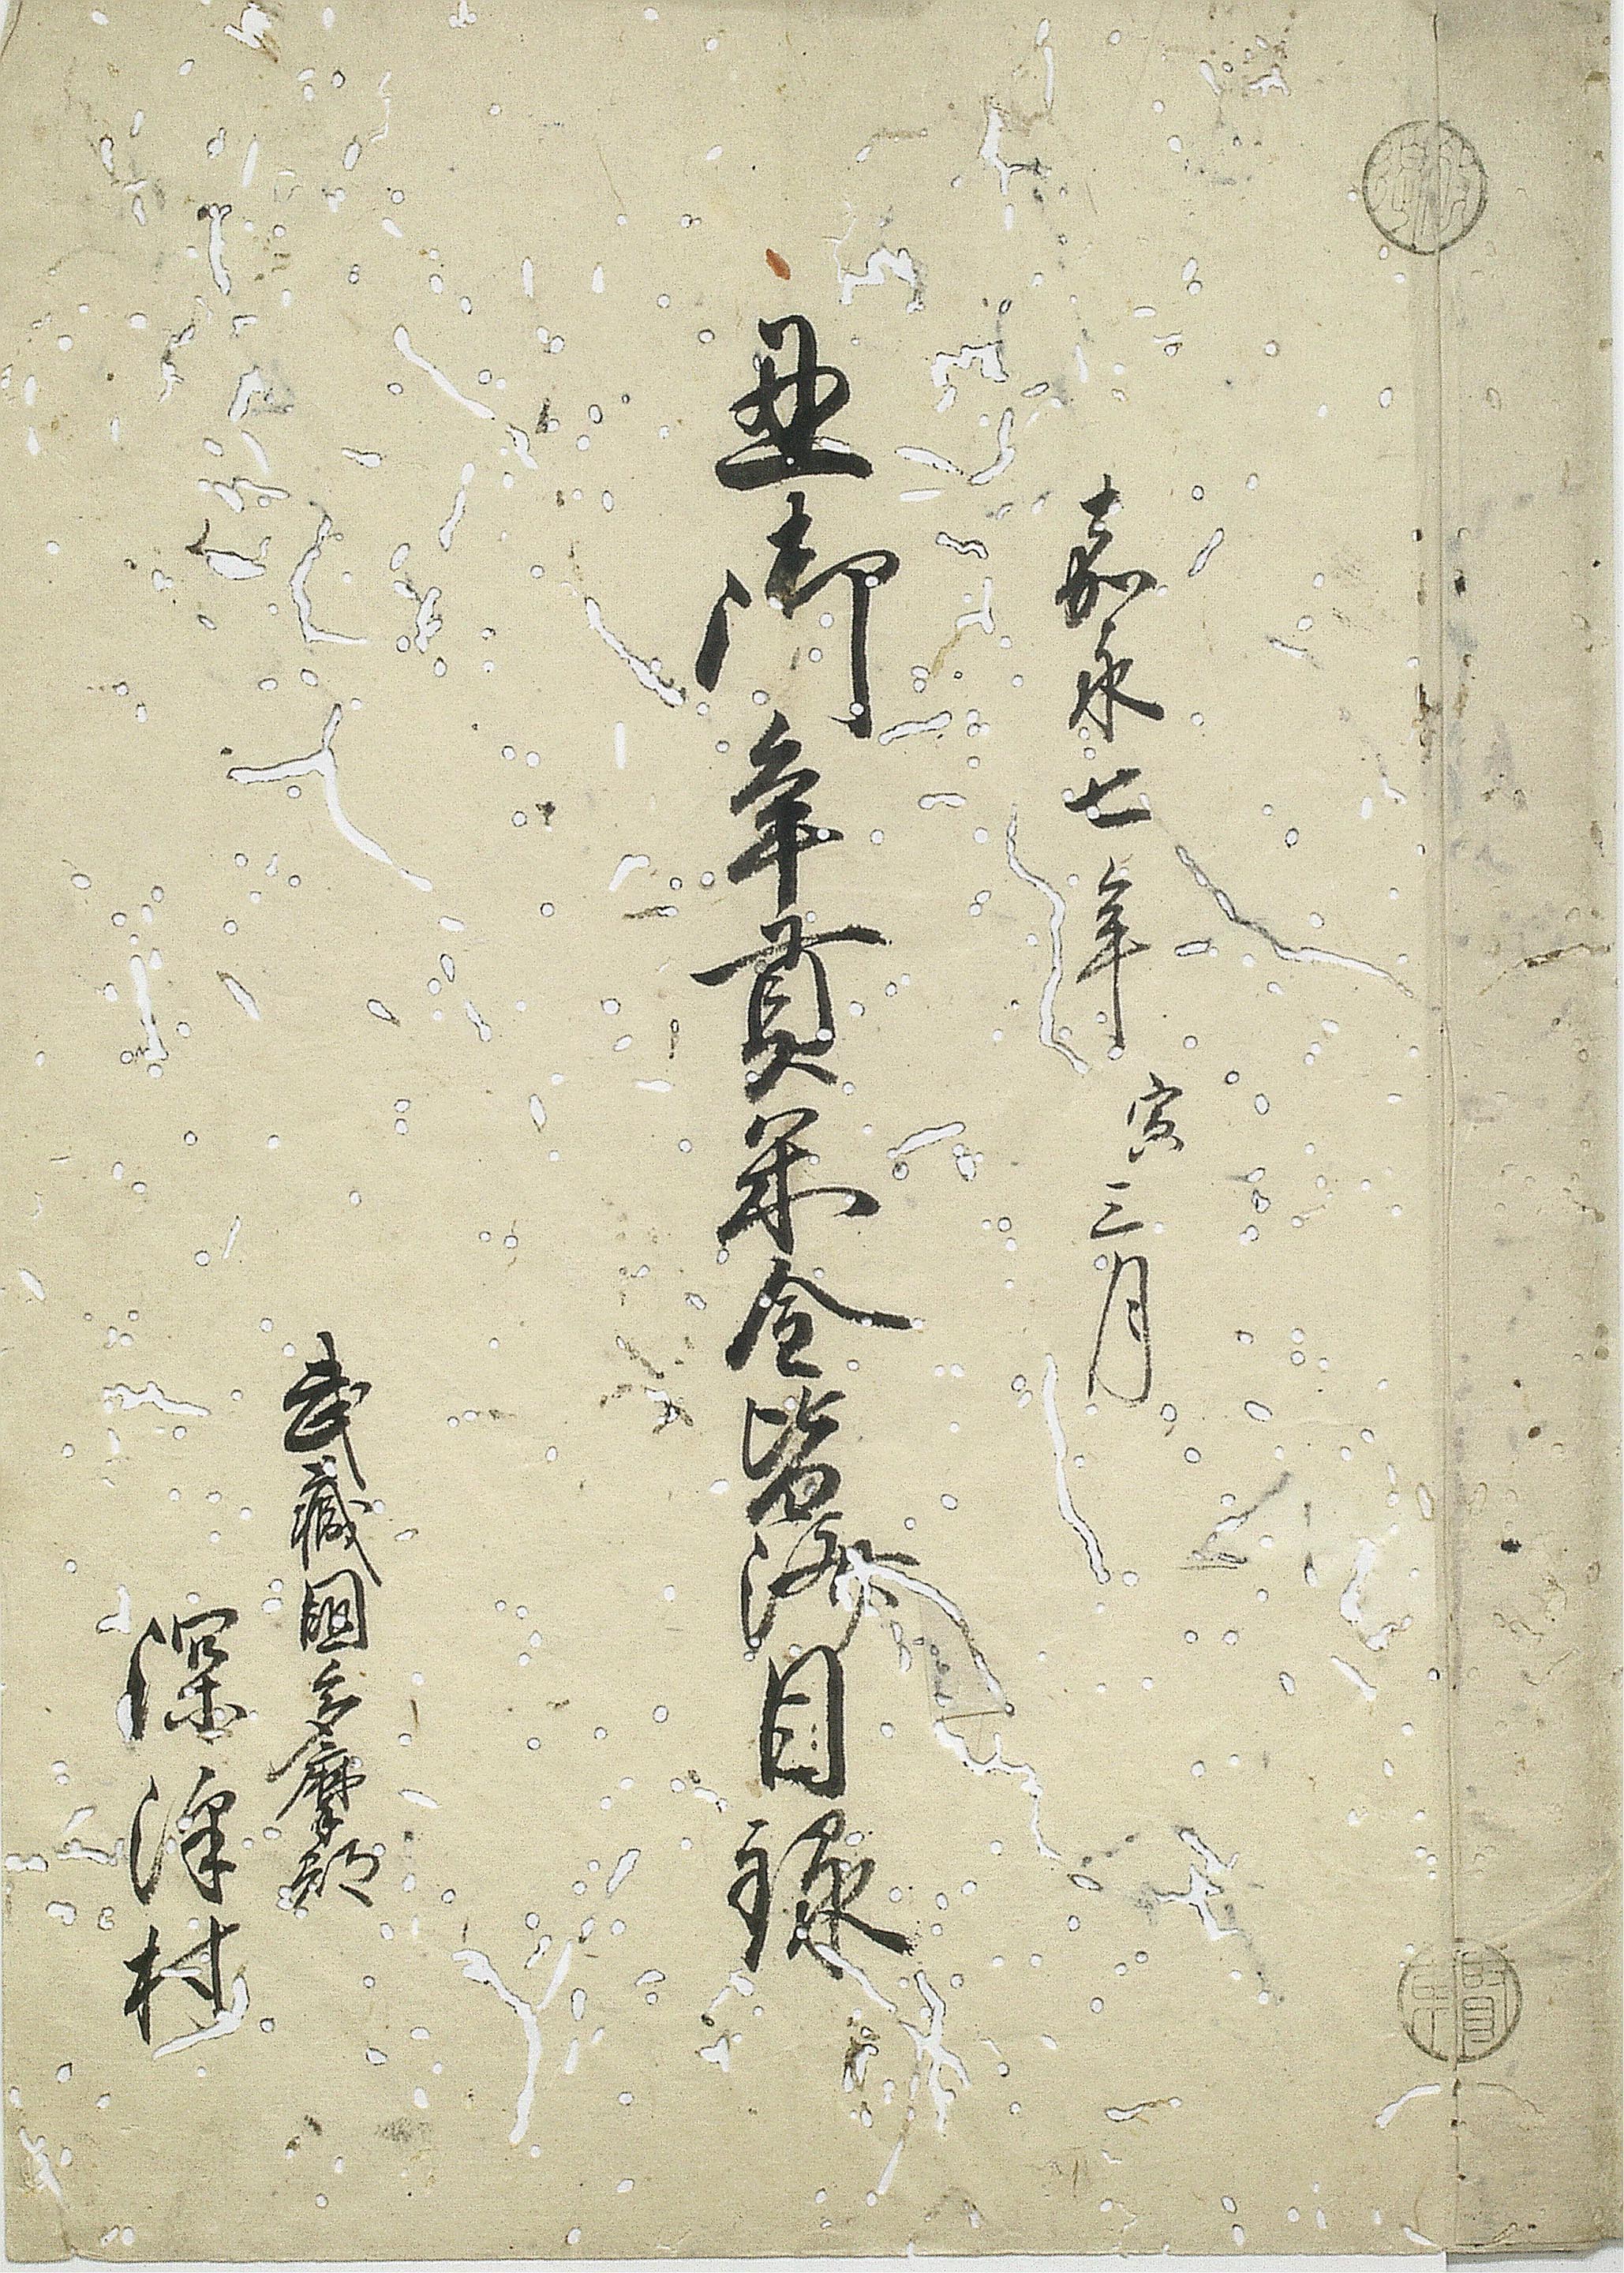 嘉永七年寅三月
丑御年貢米金皆済目録
武蔵国多摩郡
深澤村